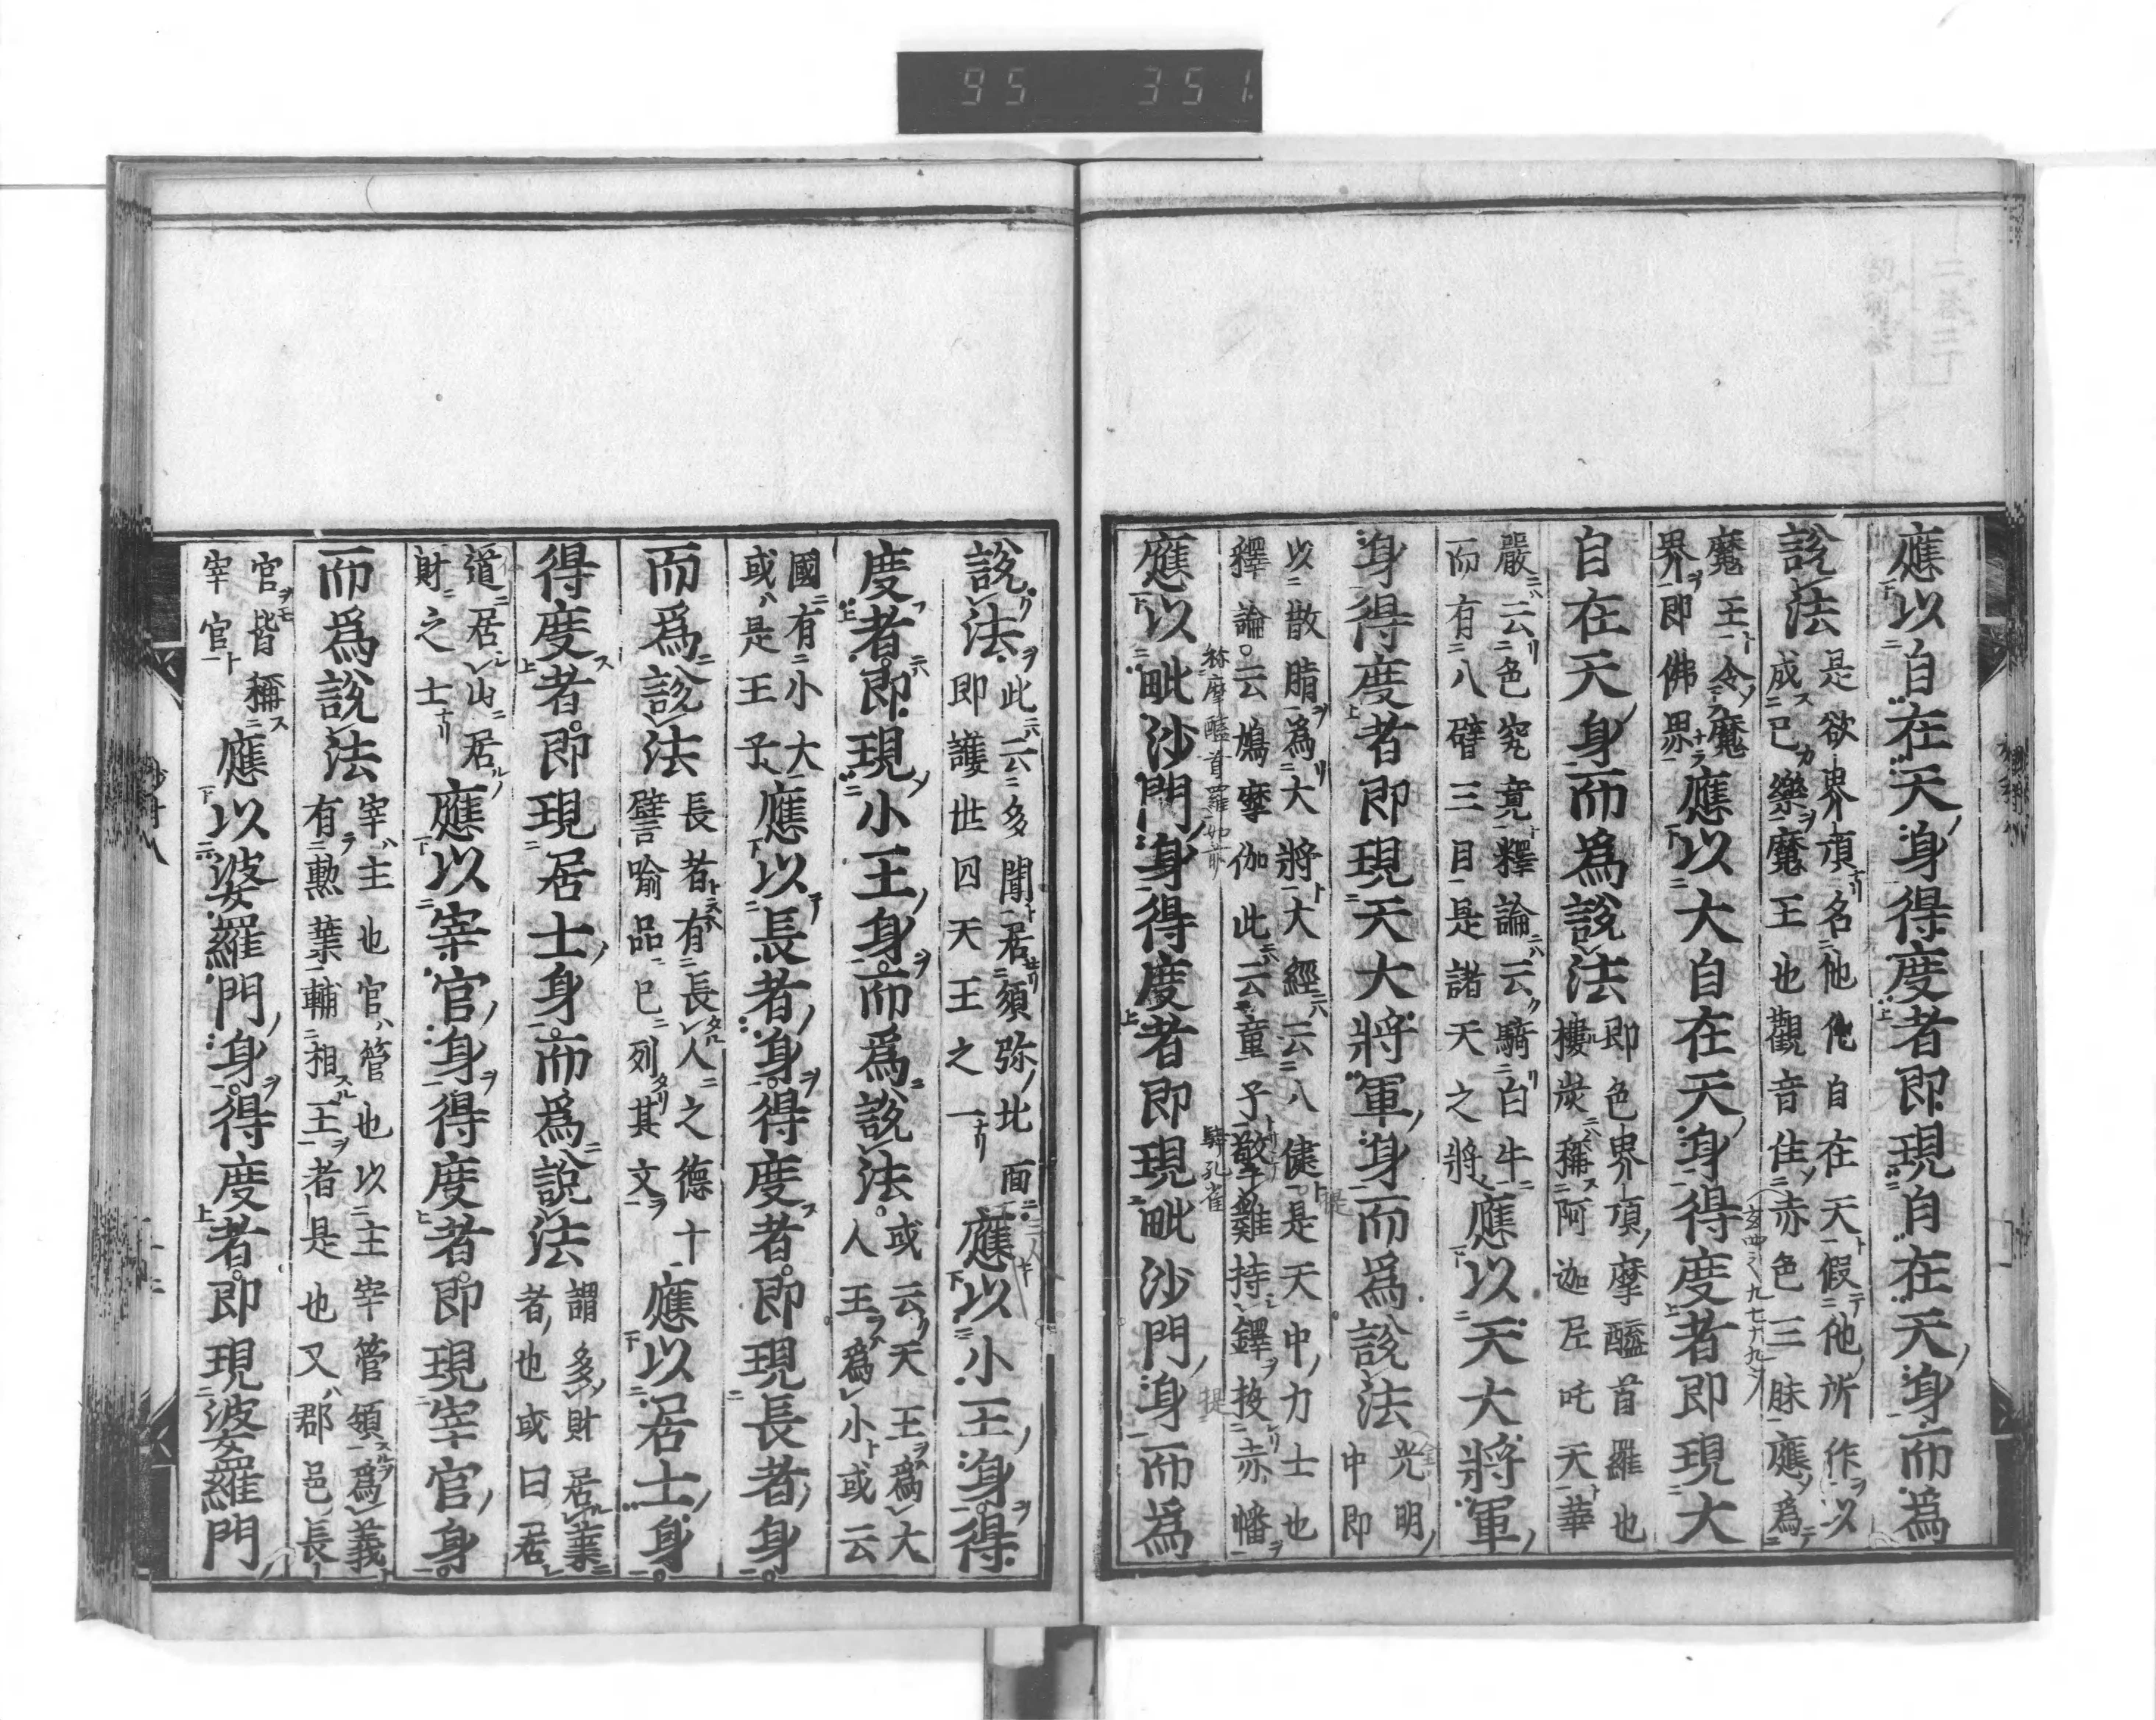 95 351
應以自在天身得度者即現自在天身而為
說法
是欲界頂名他化自在天假他所作以
成己樂魔王也觀音住赤色三昧應為
魔王令魔
界即佛界
應以大自在天身得度者即現大
自在天身而為說法
即色界頂摩醯首羅也
樓炭稱阿迦尼吒天華
嚴云色究竟釋論云騎白牛
而有八臂三目是諸天之將
應以天大將軍
身得度者即現天大將軍身而為說法
光明
中即
以散脂為大將大經云八健提是天中力士也
釋論云鳩摩伽此云童子擎雞持鐸捉赤幡
應以毗沙門身得度者即現毗沙門身而為
說法
此云多聞居須弥北面
即護世四天王之一
應以小王身得
度者即現小王身而為說法
或云天王為大
人王為小或云
國有小大
或是王子
應以長者身得度者即現長者身
而為說法
長者有長人之德十
譬喻品已列其文
應以居士身
得度者即現居士身而為說法
謂多財居業
者也或曰居
道居山居
財之士
應以宰官身得度者即現宰官身
而為說法
宰主也官管也以主宰管領為義
有勲業輔相王者是也又郡邑長
官皆稱
宰官
應以婆羅門身得度者即現婆羅門